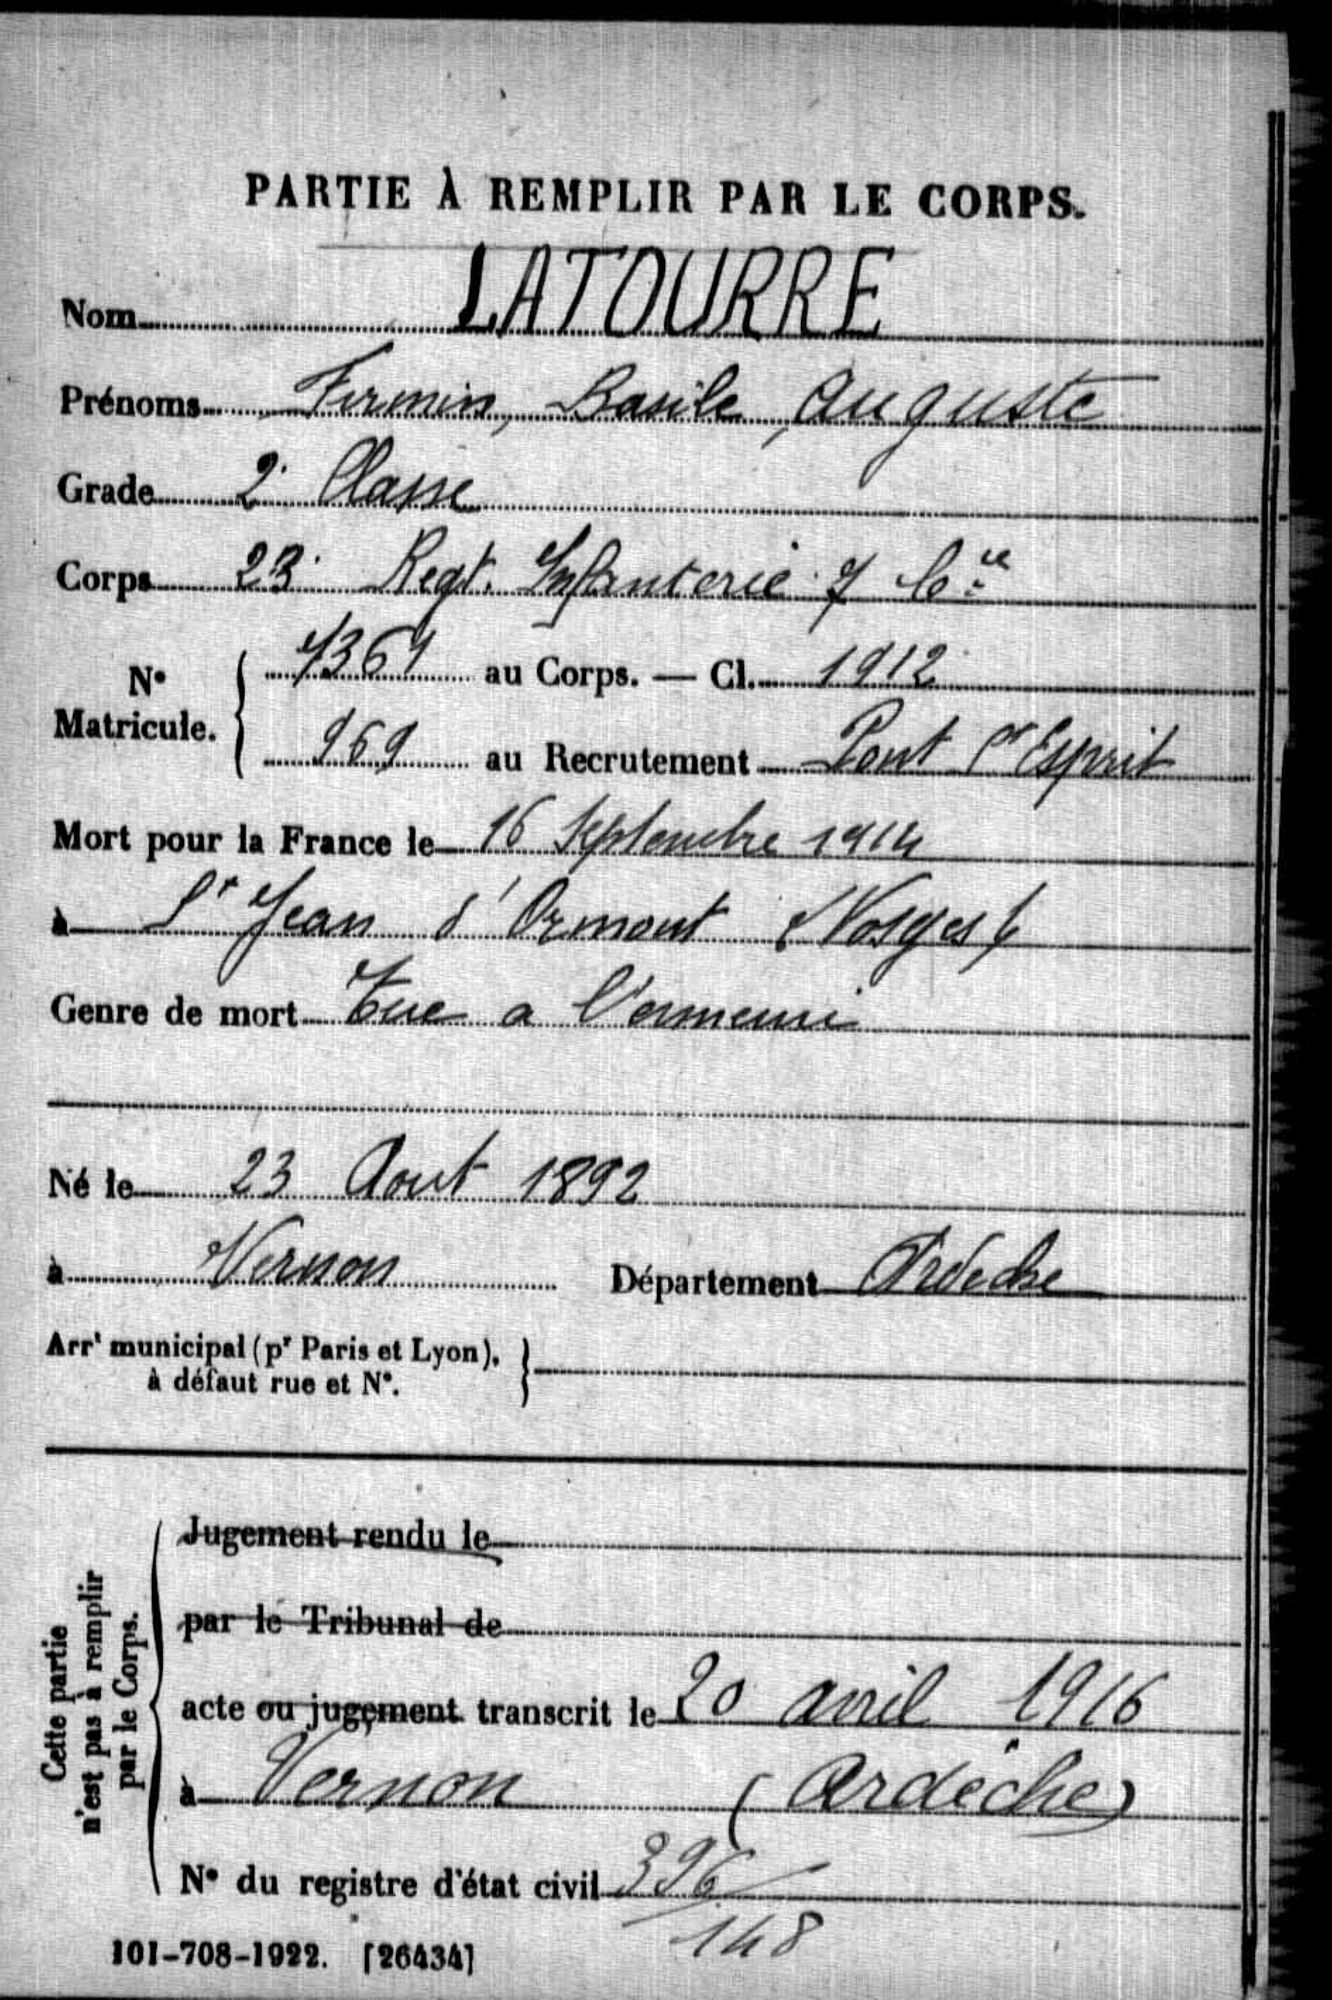 PARTIE À REMPLIR PAR LE CORPS.
Nom LATOURRE
Prénoms Firmin, Basile, Auguste
Grade 2e Classe
Corps 23e Regt. Infanterie 7 Cie
N° Matricule. { 7369 au Corps. — Cl. 1912
969 au Recrutement Pont St Esprit
Mort pour la France le 16 Septembre 1914
à St Jean d'Ormont (Vosges)
Genre de mort Tué a l'ennemi
Né le 23 Aout 1892
à Vernon Département Ardèche
Arrt municipal (pr Paris et Lyon), à défaut rue et N°. }
Cette partie n'est pas à remplir par le Corps.
Jugement rendu le
par le Tribunal de
acte ou jugement transcrit le 20 avril 1916
à Vernon (Ardèche)
N° du registre d'état civil 396/148
101-708-1922. [26434]